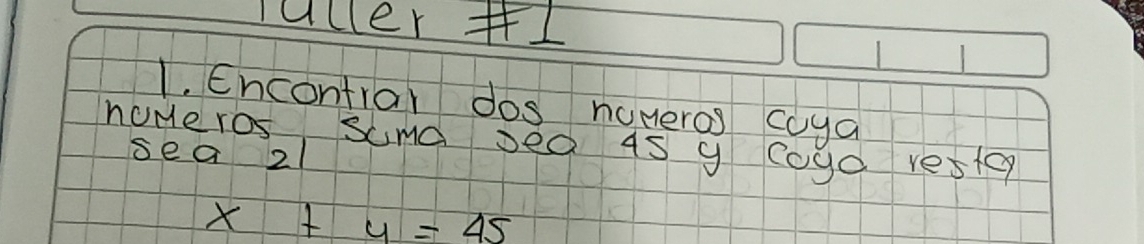 Taller #1
1. Encontrar dos numeros cuya
numeros suma sea 45 y cuya resta
sea 21
x + y = 45